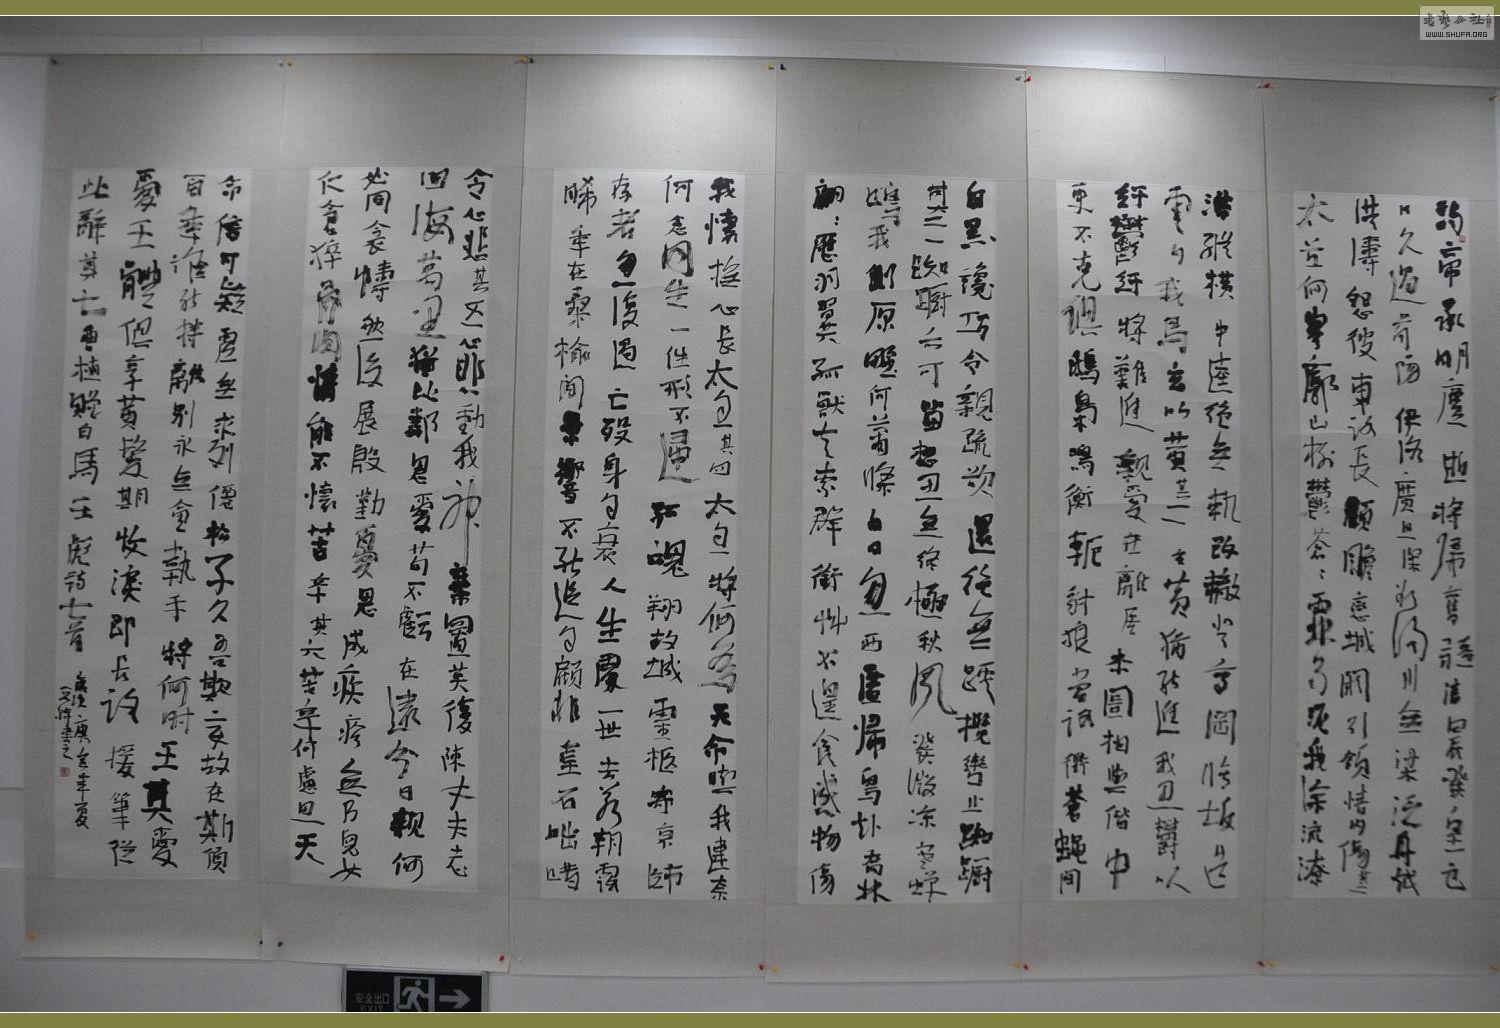 謁帝承明廬逝將歸舊疆清晨發皇邑
日夕過首陽伊洛廣且深欲濟川無梁泛舟越
洪濤怨彼東路長顧瞻戀城闕引領情內傷其一
太谷何寥廓山樹鬱蒼々霖雨泥我塗流潦
浩縱橫中逵絕無軌改轍登高岡修坂造
雲日我馬玄以黃其二玄黃猶能進我思鬱以
紆鬱紆將難進親愛在離居本圖相與偕中
更不克俱鴟梟鳴衡軛豺狼當路衢蒼蠅間
白黑讒巧令親疏欲還絕無蹊攬轡止踟躕
其三踟躕亦何留相思無終極秋風發微涼寒蟬
鳴我側原野何蕭條白日忽西匿歸鳥赴喬林
翩々厲羽翼孤獸走索群銜草不遑食感物傷
我懷撫心長太息其四太息將何為天命與我違奈
何念同生一往形不歸孤魂翔故域靈柩寄京師
存者忽復過亡歿身自衰人生處一世去若朝露
晞年在桑榆間景響不能追自顧非金石咄唶
令心悲其五心悲動我神棄置莫復陳丈夫志
四海萬里猶比鄰恩愛苟不虧在遠分日親何
必同衾幬然後展殷勤憂思成疾疢無乃兒女
仁倉猝骨肉情能不懷苦辛其六苦辛何慮思天
命信可疑虛無求列僊松子久吾欺變故在斯須
百年誰能持離別永無會執手將何時王其愛
愛王體俱享黃髮期收淚即長路援筆從
此辭其七曹植贈白馬王彪詩七首
歲次庚寅年夏
安全出口
EXIT
書法公社
WWW.SHUFA.ORG